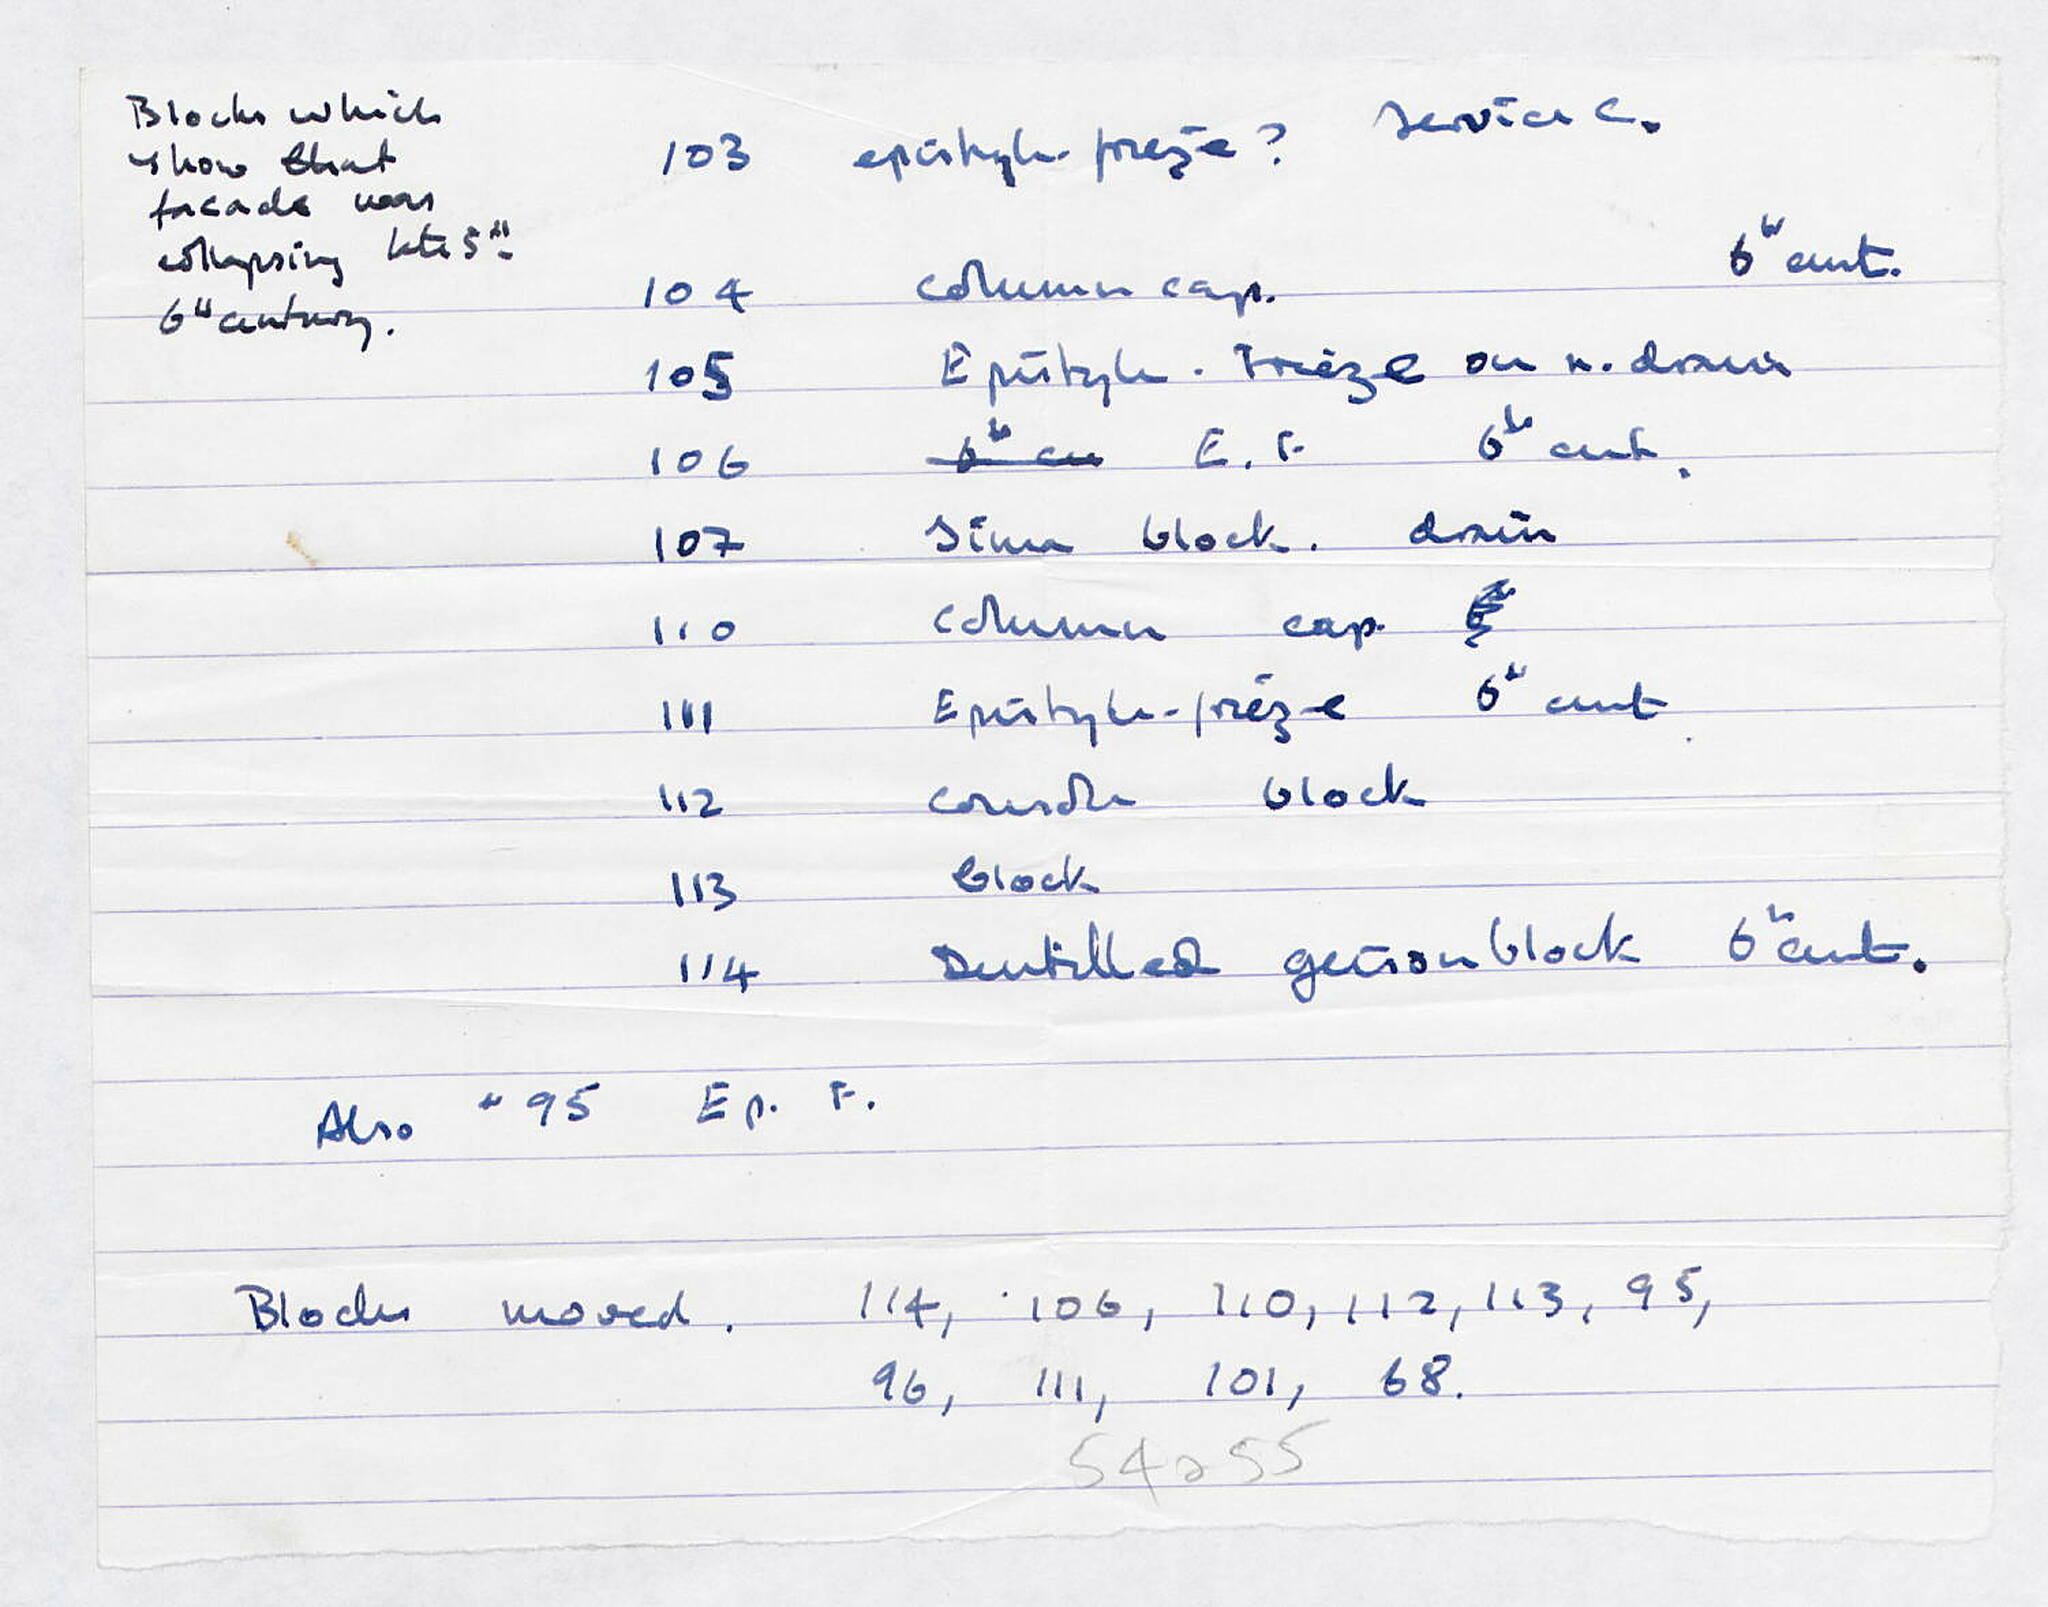 Blocks which
show that
facade was
collapsing late 5th -
6th century.
103 epistyle-frieze? Service C.
104 column cap. 6th cent.
105 Epistyle-Frieze on n. drain
106 6th ce E.F 6th cent.
107 Sima block. drain
110 column cap.
111 Epistyle-frieze 6th cent
112 console block
113 block
114 Dentilled geison block 6th cent.
Also # 95 Ep. F.
Blocks moved. 114, 106, 110, 112, 113, 95,
96, 111, 101, 68.
54 55